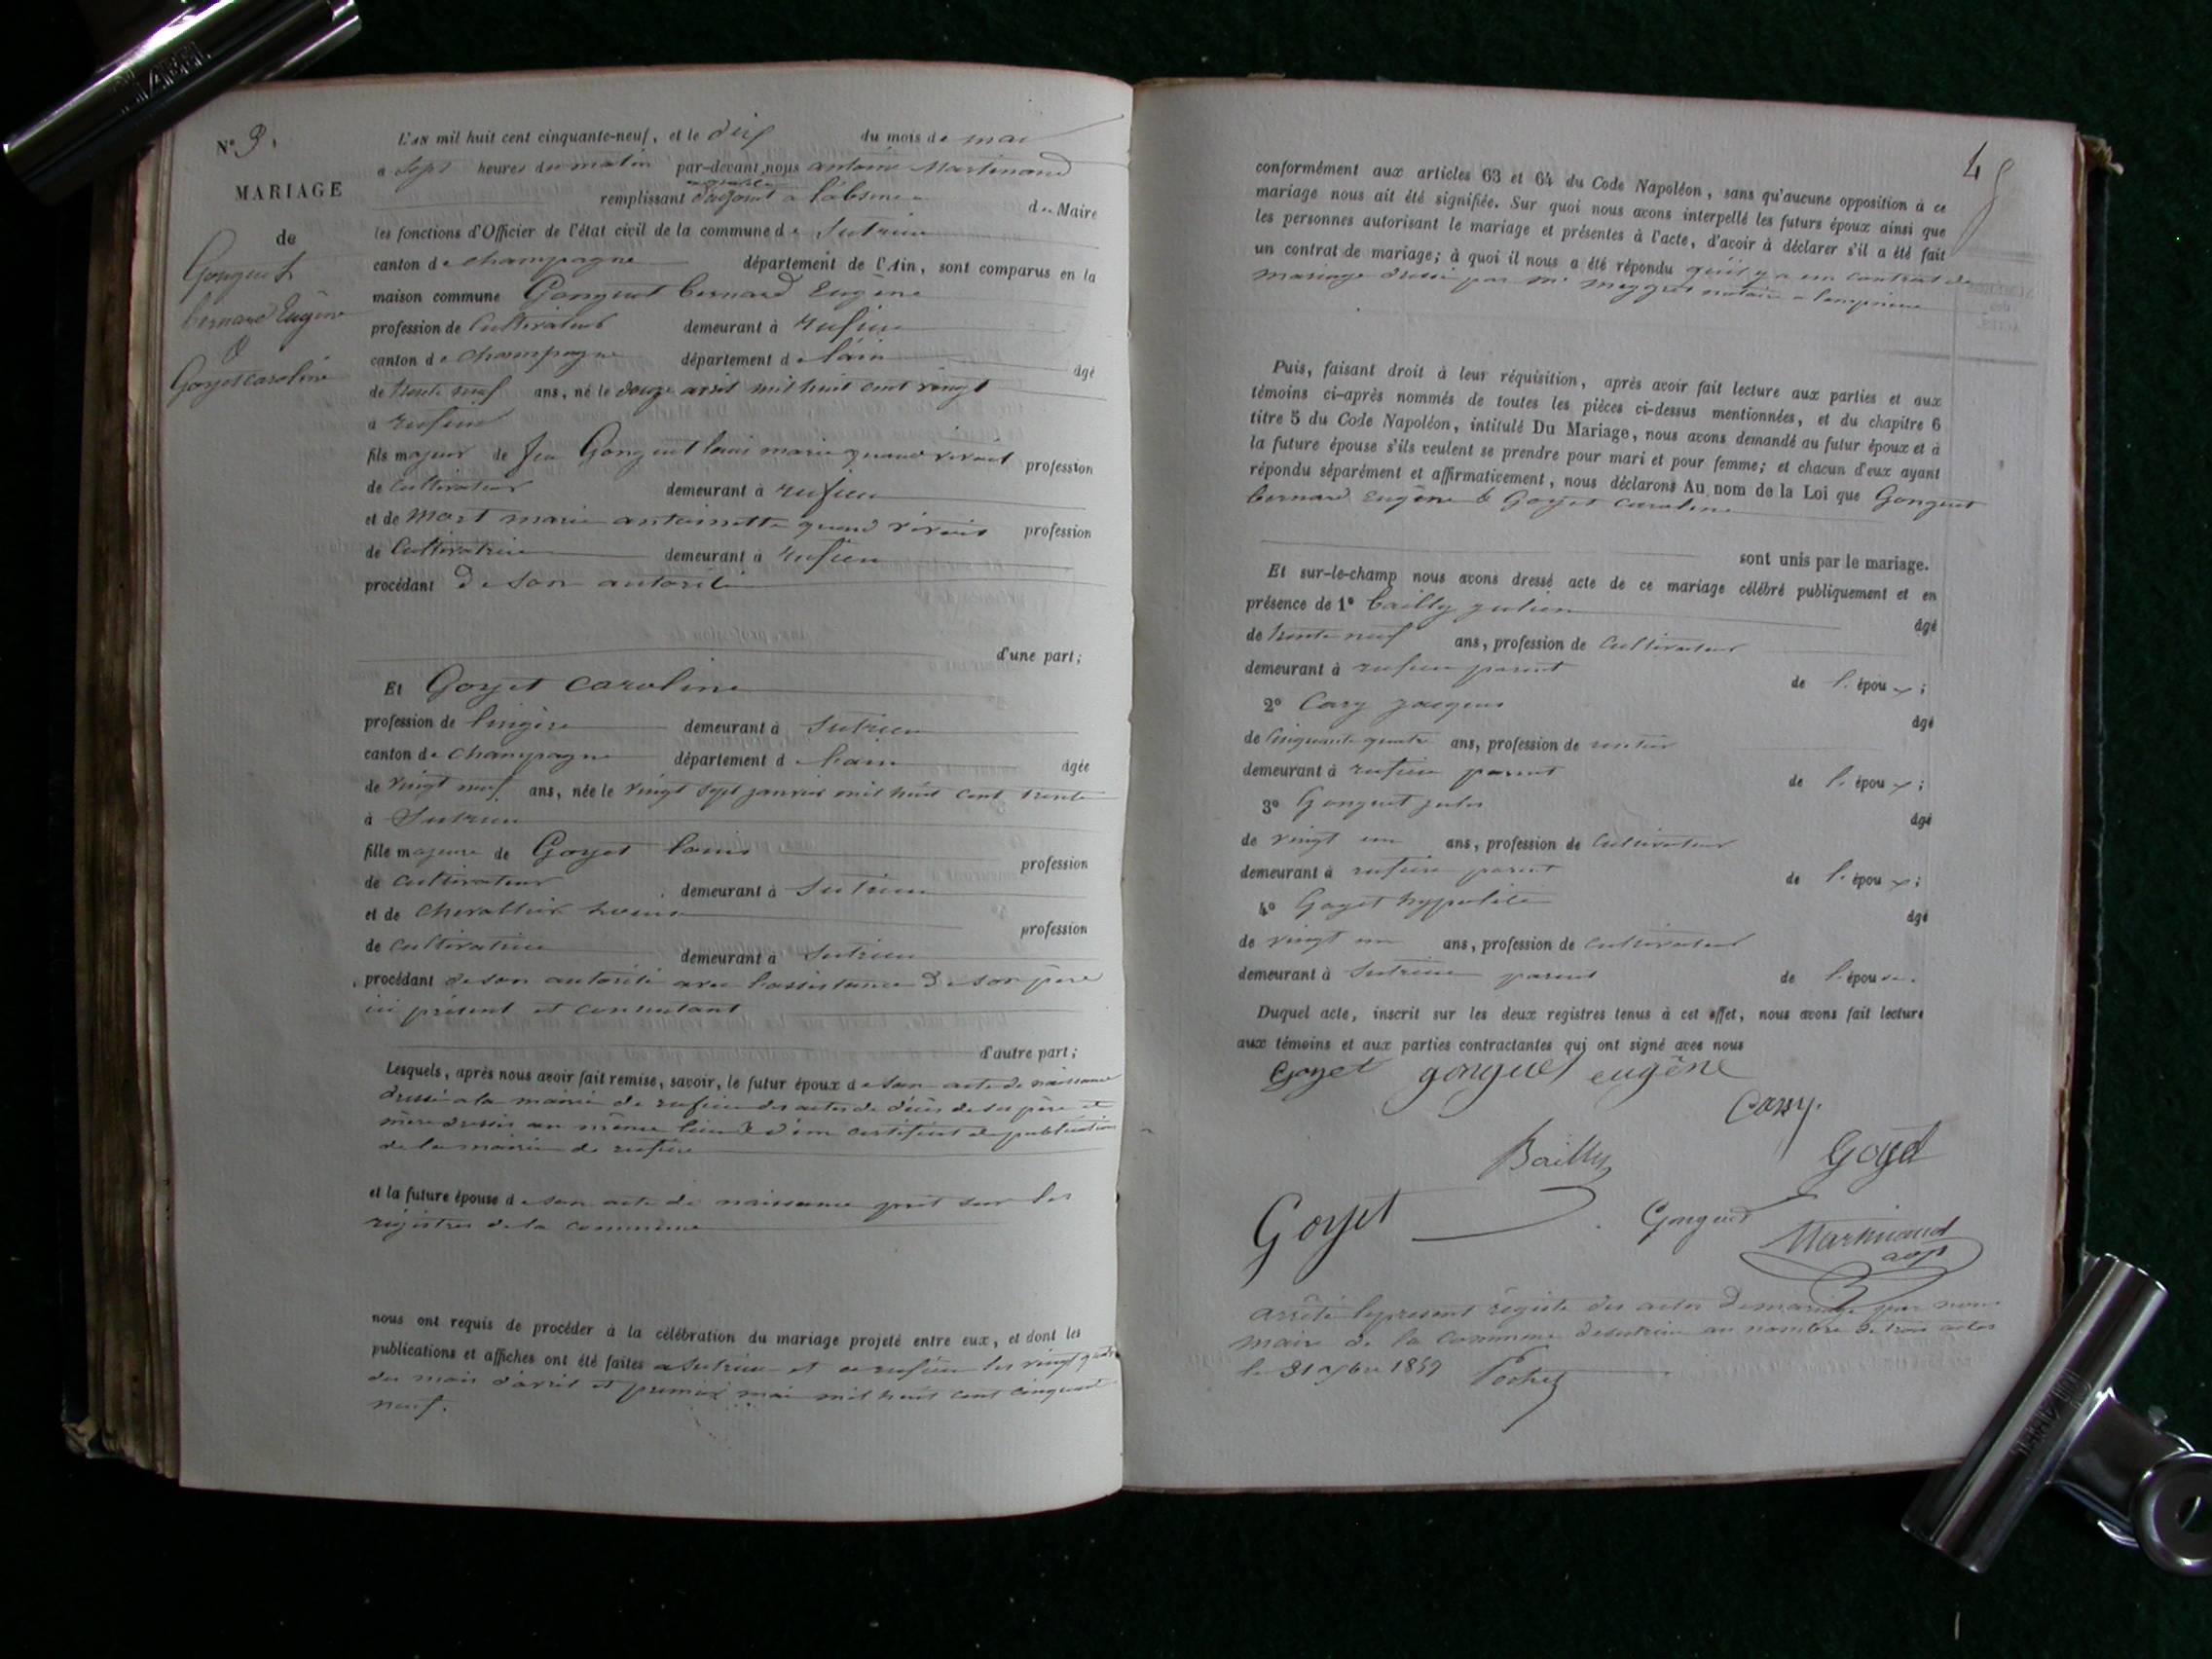 N° 3.
MARIAGE
de
Gonguet
bernard Eugène
&
Goyet caroline
L'an mil huit cent cinquante-neuf, et le dix du mois de mai
à sept heures du matin par-devant nous antoine Martinand
remplissant d'adjoint a l'absence du Maire
les fonctions d'Officier de l'état civil de la commune de Sutrieu
canton de champagne département de l'Ain, sont comparus en la
maison commune Gonguet bernard Eugène
profession de Cultivateur demeurant à rufieu
canton de champagne département de l'ain âgé
de trente neuf ans, né le douze avril mil huit cent vingt
à rufieu
fils majeur de feu Gonguet louis marie quand vivait profession
de cultivateur demeurant à rufieu
et de Mort marie antoinette quand vivait profession
de Cultivatrice demeurant à rufieu
procédant de son autorité
d'une part;
Et Goyet caroline
profession de lingère demeurant à Sutrieu
canton de champagne département de l'ain âgée
de vingt neuf ans, née le vingt sept janvier mil huit cent trente
à Sutrieu
fille majeure de Goyet louis profession
de cultivateur demeurant à Sutrieu
et de chevallier profession
de cultivatrice demeurant à Sutrieu
procédant de son autorité avec l'assistance de son père
ici présent et consentant
d'autre part;
Lesquels, après nous avoir fait remise, savoir, le futur époux de son acte de naissance
dressé a la mairie de rufieu des actes de décès de ses père et
mère dressés au même lieu & d'un certificat de publication
de la mairie de rufieu
et la future épouse de son acte de naissance prit sur les
régistres de la commune
nous ont requis de procéder à la célébration du mariage projeté entre eux, et dont les
publications et affiches ont été faites a Sutrieu et a rufieu les vingt quatre
du mois d'avril et premier mai mil huit cent cinquante
neuf.
conformément aux articles 63 et 64 du Code Napoléon, sans qu'aucune opposition à ce
mariage nous ait été signifiée. Sur quoi nous avons interpellé les futurs époux ainsi que
les personnes autorisant le mariage et présentes à l'acte, d'avoir à déclarer s'il a été fait
un contrat de mariage; à quoi il nous a été répondu qu'il y a un contrat de
mariage dressé par me notaire a
Puis, faisant droit à leur réquisition, après avoir fait lecture aux parties et aux
témoins ci-après nommés de toutes les pièces ci-dessus mentionnées, et du chapitre 6
titre 5 du Code Napoléon, intitulé Du Mariage, nous avons demandé au futur époux et à
la future épouse s'ils veulent se prendre pour mari et pour femme; et chacun d'eux ayant
répondu séparément et affirmativement, nous déclarons Au nom de la Loi que Gonguet
bernard Eugène & Goyet caroline
sont unis par le mariage.
Et sur-le-champ nous avons dressé acte de ce mariage célébré publiquement et en
présence de 1° bailly julien âgé
de trente neuf ans, profession de cultivateur
demeurant à rufieu parent de l'époux;
2° Cary jacques âgé
de cinquante quatre ans, profession de rentier
demeurant à rufieu parent de l'époux;
3° Gonguet jules âgé
de vingt un ans, profession de cultivateur
demeurant à rufieu parent de l'époux;
4° Goyet hyppolite âgé
de vingt un ans, profession de cultivateur
demeurant à Sutrieu parent de l'épouse.
Duquel acte, inscrit sur les deux registres tenus à cet effet, nous avons fait lecture
aux témoins et aux parties contractantes qui ont signé avec nous
Goyet gonguet eugène
Cary.
Bailly Goyet
Goyet Gonguet Martinand
adjt
arrêté le present régistre des actes de mariage par nous
maire de la commune de sutrieu au nombre de trois actes
le 31 Xbre 1859